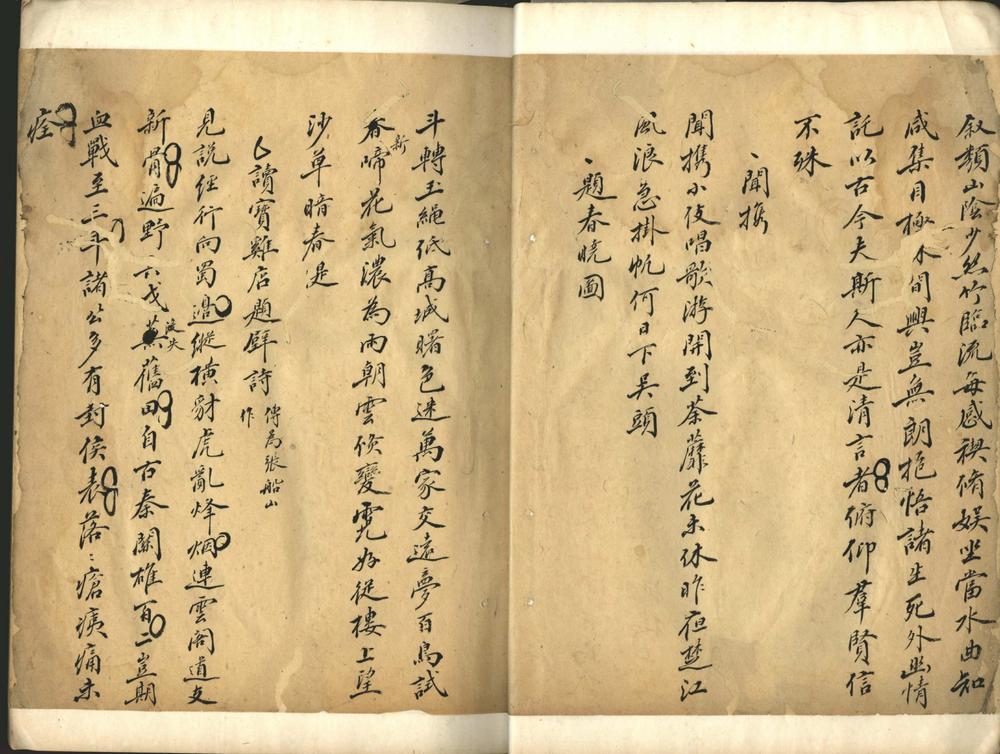 叙類山陰少丝竹臨流每感禊脩娱坐當水曲知
咸集目極林間興豈無朗抱悟諸生死外幽情
託以古今夫斯人亦是清言者俯仰羣賢信
不殊
聞攜
聞攜小伎唱歌游開到荼蘼花未休昨夜楚江
風浪急掛帆何日下吴頭
題春晓圖
斗轉玉繩低高城曙色迷萬家交遠夢百鳥試
新
春啼花氣濃為雨朝雲倏變霓好從樓上望
沙草暗春堤
讀寶雞店題壁詩 傳為張船山作
見説经行向蜀邊縱横豺虎亂烽烟連雲閣道支
新骨遍野六戈蕪舊田自古秦關雄百二豈期
血戰至三年諸公多有封侯表落〻瘡痍痛未
痊